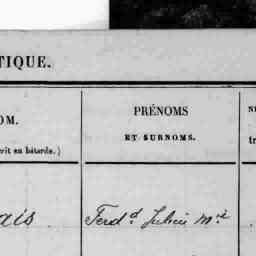 TIQUE.
OM.
PRÉNOMS
ET SURNOMS.
crit en bâtarde.)
ais
Ferd.d Julien M.el